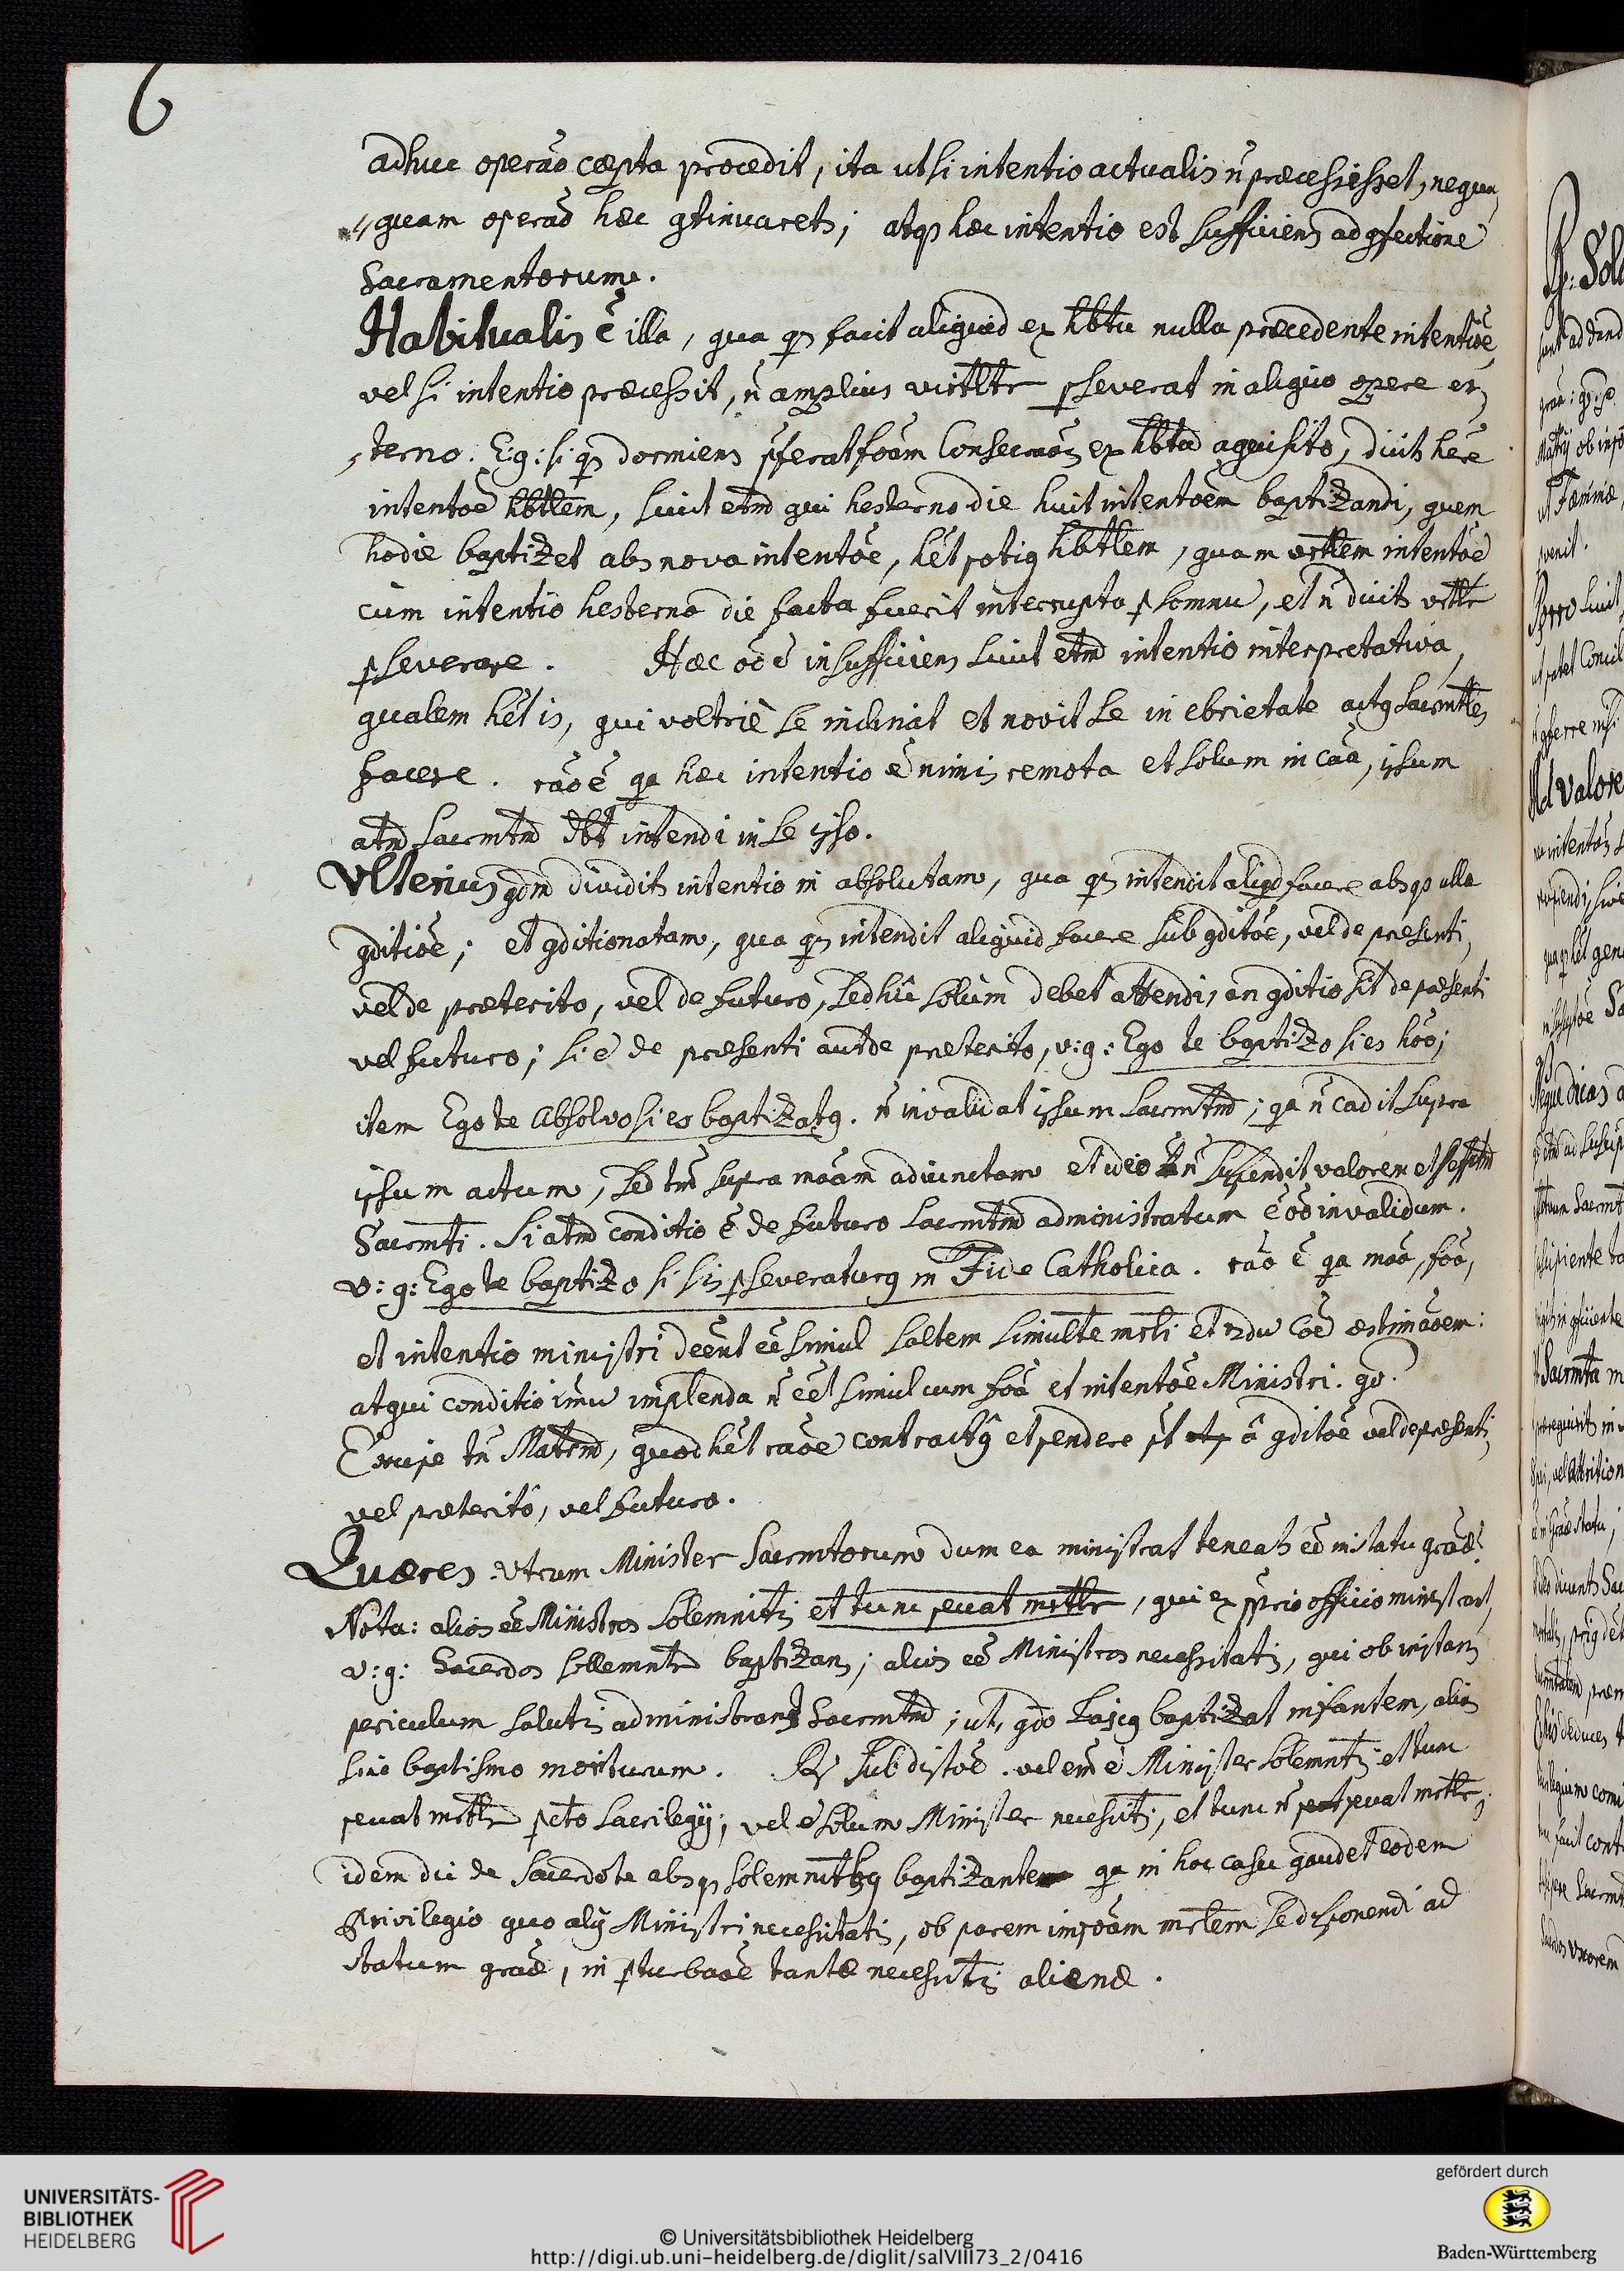 6
adhuc operaõ cæpta procedit, ita ut si intentio actualis ñ præcessisset, nequa
quam operaõ hæc gtinuarets; atqs hæc intentio est sufficiens ad gfectionẽ
Sacramentorum.
Habitualis ẽ illa, qua qs facit aliquid ex hbtu nulla præcedente intentiõe,
vel si intentio præcessit, ñ amplius virtltr pseverat in aliquo opere ex
terno. E:g: si qs dormiens pferat foãm Consecraõis ex hbtu aquisito, dicits herẽ
intentõẽ hbtlem, sicut etm̃ qui hesterno die huit intentõem baptizandi, quem
hodie baptizet abs nova intentõe, hẽt potig hbtlem, quam vrtlem intentõẽ
cum intentio hesterno die facta fuerit interrupta p somnu, et ñ dicits vrtltr
pseverare. Hæc oẽ ẽ insufficiens sicut etm̃ intentio interpretativa,
qualem hẽt is, qui voltriẽ se inebriat et novit se in ebrietate actg sacrmtles
facere. raõ ẽ qa hæc intentio ẽ nimis remota et solum in caã, ipsum
atm̃ sacrmtm̃ dbt intendi in se ipso.
Ulterius gdm̃ dividits intentio in absolutam, qua qs intendit aliqd facere absqs ulla
gditiõe; et gditionatam, qua qs intendit aliquid facere sub gditõe, vel de præsenti,
vel de præterito, vel de futuro, sed hic solùm debet attendi, an gditio sit de præsenti
vel futuro; si ẽ de præsenti aut de præterito, v:g: Ego te baptizo si es hõo;
item Ego te absolvo si es baptizatg. ñ invalidat ipsum sacrmtm̃; qa ñ cadit supra
ipsum actum, sed tm̃ supra maãm adiunctam et ideo ñ suspendit valorem et effctm̃
Sacrmti. Si atm̃ conditio ẽ de futuro sacrmtm̃ administratum ẽ oõ invalidum.
v:g: Ego te baptizo si sis pseveraturg in Fide Catholica. raõ ẽ qa maã, foã,
et intentio ministri deẽnt eẽ simul saltem simulte mrli et 2du Coẽ æstimãoem:
atqui conditio implenda ñ eẽt simul cum foã et intentõe Ministri. gõ.
Excipe tñ Matrm̃, quod hẽt raõe contractg et pendere pt a gditõe vel de præsenti,
vel præterito, vel futuro.
Quæres. Utrum Minister Sacrmtorum dum ea ministrat teneats eẽ in statu graæ?
Nota: alios eẽ Ministros solemnitis et tunc peccat mrtltr, qui ex pprio officio ministrant,
v:g: Sacerdos sollemntr baptizans; alios eẽ Ministros necessitatis, qui ob instans
periculum salutis administrant Sacrmtm̃; ut, qdo Laicg baptizat infantem, alias
sine baptismo moriturum. R: sub distõe. vel em̃ ẽ Minister solemntis et tunc
peccat mrtltr pctõ sacrilegij; vel ẽ solum Minister necessittis, et tunc ñ peccat mrtltr;
idem dic de Sacerdote absqs solemnitbg baptizante qa in hoc casu gaudet eodem
Privilegio quo alij Ministri necessitatis, ob parem impoãm mrlem se disponendi ad
statum graæ, in pturbaõe tantæ necessittis alienæ.
UNIVERSITÄTS-
BIBLIOTHEK
HEIDELBERG
© Universitätsbibliothek Heidelberg
http://digi.ub.uni-heidelberg.de/diglit/salVIII73_2/0416
gefördert durch
Baden-Württemberg